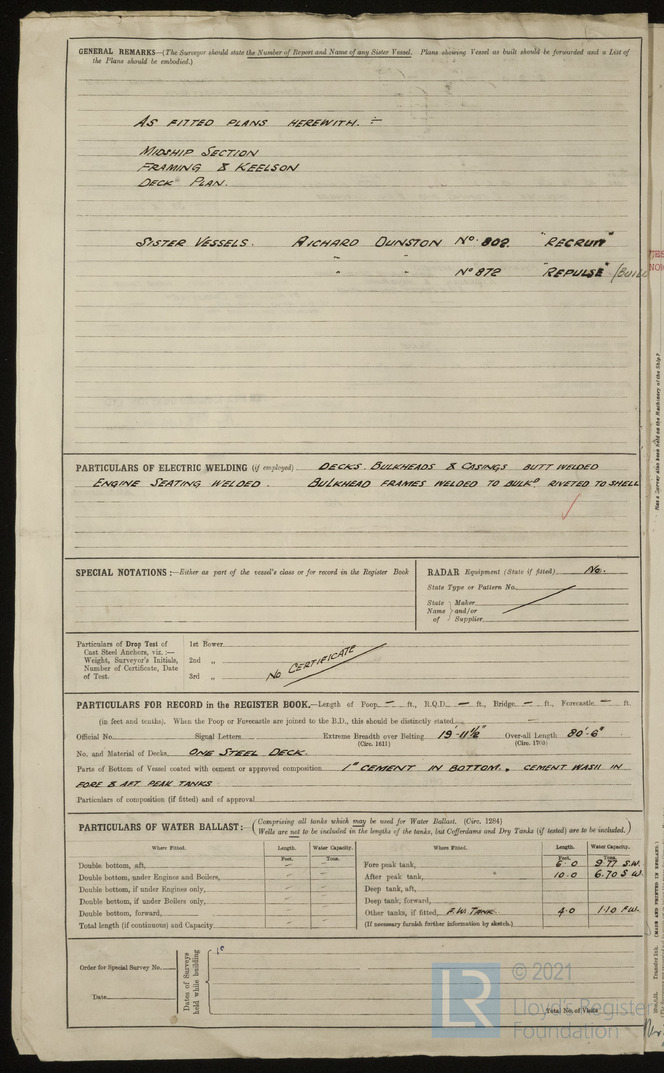 GENERAL REMARKS—(The Surveyor should state the Number of Report and Name of any Sister Vessel. Plans showing Vessel as built should be forwarded and a List of
the Plans should be embodied.)
AS FITTED PLANS HEREWITH. :-
MIDSHIP SECTION
FRAMING & KEELSON
DECK PLAN.
SISTER VESSELS. RICHARD DUNSTON No. 802 "RECRUIT"
" " No 872 "REPULSE"
PARTICULARS OF ELECTRIC WELDING (if employed) DECKS. BULKHEADS & CASINGS BUTT WELDED
ENGINE SEATING WELDED. BULKHEAD FRAMES WELDED TO BULKD RIVETED TO SHELL
SPECIAL NOTATIONS:—Either as part of the vessel's class or for record in the Register Book
RADAR Equipment (State if fitted) No.
State Type or Pattern No.
State Name of Maker and/or Supplier
Particulars of Drop Test of
Cast Steel Anchors, viz.:—
Weight, Surveyor's Initials,
Number of Certificate, Date
of Test.
1st Bower
2nd "
3rd "
NO CERTIFICATE
PARTICULARS FOR RECORD in the REGISTER BOOK.—Length of Poop — ft., R.Q.D. — ft., Bridge — ft., Forecastle — ft.
(in feet and tenths). When the Poop or Forecastle are joined to the B.D., this should be distinctly stated —
Official No. Signal Letters Extreme Breadth over Belting 19'-11½" Over-all Length 80'-6"
(Circ. 1611) (Circ. 1703)
No. and Material of Decks ONE STEEL DECK.
Parts of Bottom of Vessel coated with cement or approved composition 1" CEMENT IN BOTTOM. CEMENT WASH IN
FORE & AFT PEAK TANKS
Particulars of composition (if fitted) and of approval
PARTICULARS OF WATER BALLAST:—(Comprising all tanks which may be used for Water Ballast. (Circ. 1284)
Wells are not to be included in the lengths of the tanks, but Cofferdams and Dry Tanks (if tested) are to be included.)
Where Fitted. Length. Water Capacity. Where Fitted. Length. Water Capacity.
Feet. Tons. Feet. Tons.
Double bottom, aft, — — Fore peak tank, 6·0 9·77 S.W.
Double bottom, under Engines and Boilers, — — After peak tank, 10·0 6·70 S W.
Double bottom, if under Engines only, — — Deep tank, aft,
Double bottom, if under Boilers only, — — Deep tank, forward,
Double bottom, forward, — — Other tanks, if fitted, F.W. TANK 4·0 1·10 F.W.
Total length (if continuous) and Capacity — — (If necessary furnish further information by sketch.)
Order for Special Survey No.
Date
Dates of Surveys
held while building
Total No. of Visits
LR
© 2021
Lloyd's Register
Foundation